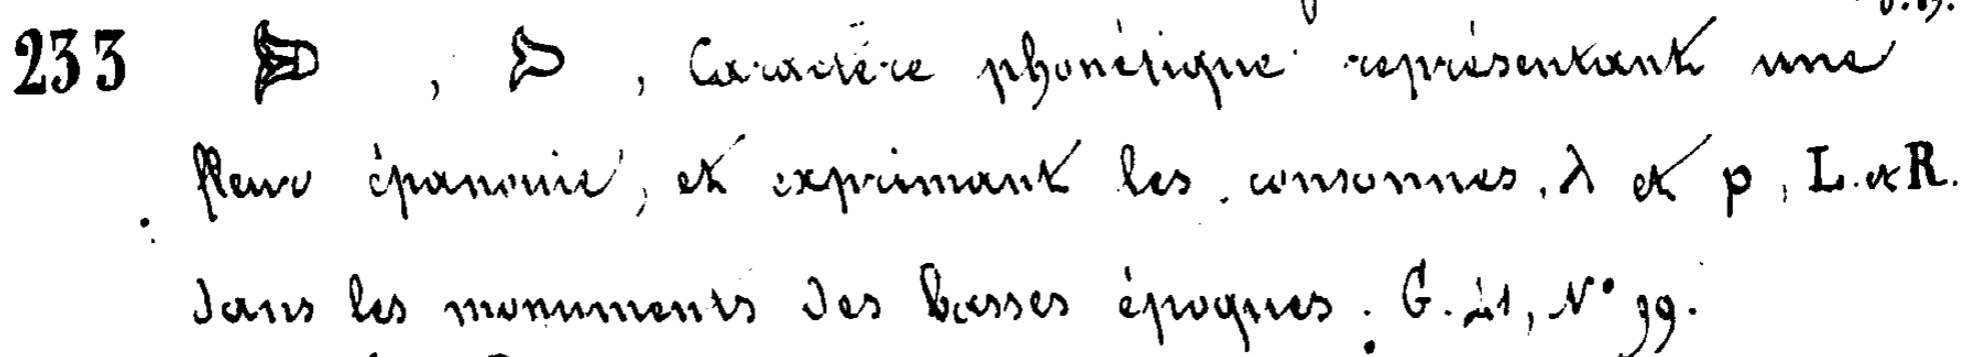 233 , , Caractère phonétique représentant une
fleur épanouie, et exprimant les consonnes, λ et ρ, L. et R.
dans les monuments des basses époques. G. 41, N° 99.